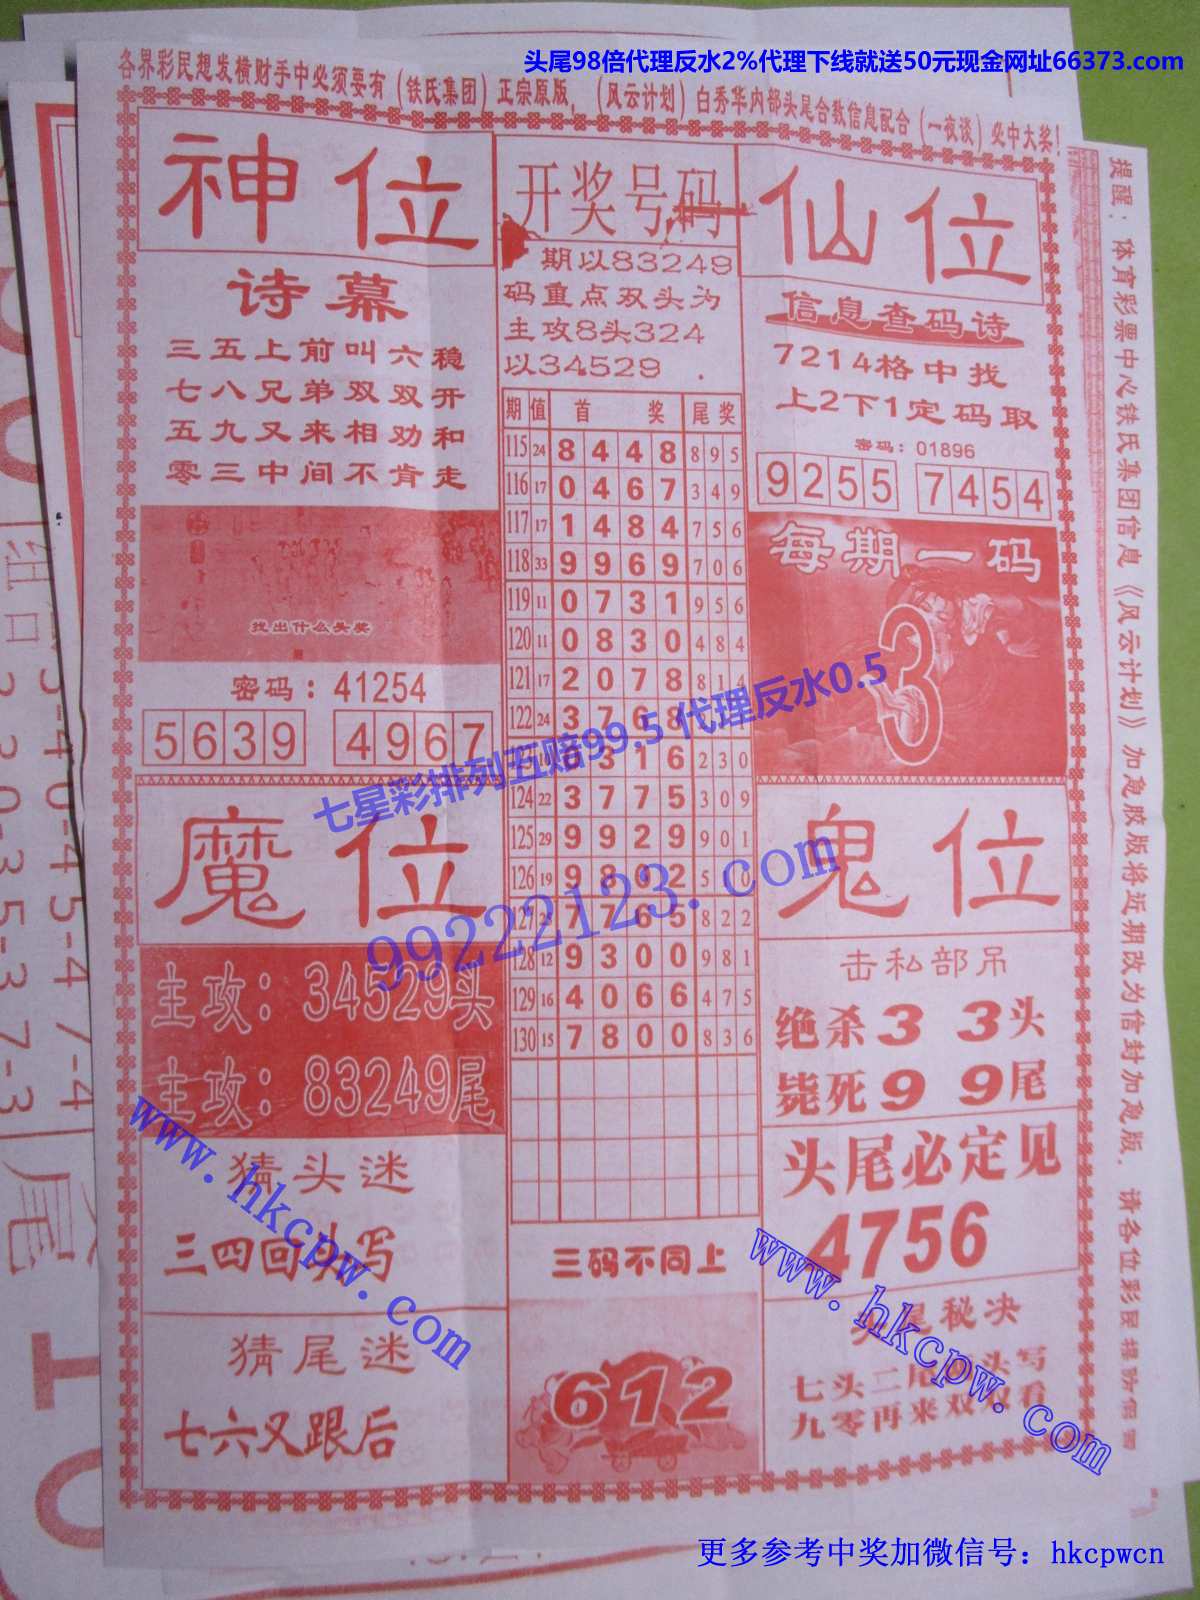 头尾98倍代理反水2%代理下线就送50元现金网址66373.com
各界彩民想发横财手中必须要有(铁氏集团)正宗原版,(风云计划)白秀华内部头尾合数信息配合(一夜谈)必中大奖!
神位
诗幕
三五上前叫六稳
七八兄弟双双开
五九又来相劝和
零三中间不肯走
找出什么头奖
密码:41254
5639 4967
开奖号码
期以83249
码重点双头为
主攻8头324
以34529.
期 值 首 奖 尾 奖
115 24 8 4 4 8 8 9 5
116 17 0 4 6 7 3 4 9
117 17 1 4 8 4 7 5 6
118 33 9 9 6 9 7 0 6
119 11 0 7 3 1 9 5 6
120 11 0 8 3 0 4 8 4
121 17 2 0 7 8 8 1 4
122 24 3 7 6 8
3 1 6 2 3 0
124 22 3 7 7 5 3 0 9
125 29 9 9 2 9 9 0 1
126 19 9 8 0 2 5 0
127 25 7 7 6 5 8 2 2
128 12 9 3 0 0 9 8 1
129 16 4 0 6 6 4 7 5
130 15 7 8 0 0 8 3 6
三码不同上
612
仙位
信息查码诗
7214格中找
上2下1定码取
密码:01896
9255 7454
每期一码
3
魔位
主攻:34529头
主攻:83249尾
猜头迷
三四回
写
猜尾迷
七六又跟后
鬼位
击私部吊
绝杀3 3头
毙死9 9尾
头尾必定见
4756
秘决
七头二尾
头写
九零再来双
看
提醒:体育彩票中心铁氏集团信息《风云计划》加急胶版将近期改为信封加急版.请各位彩民提防假冒
七星彩排列五赔99.5 代理反水0.5
99222123.com
www.hkcpw.com
www.hkcpw.com
更多参考中奖加微信号:hkcpwcn